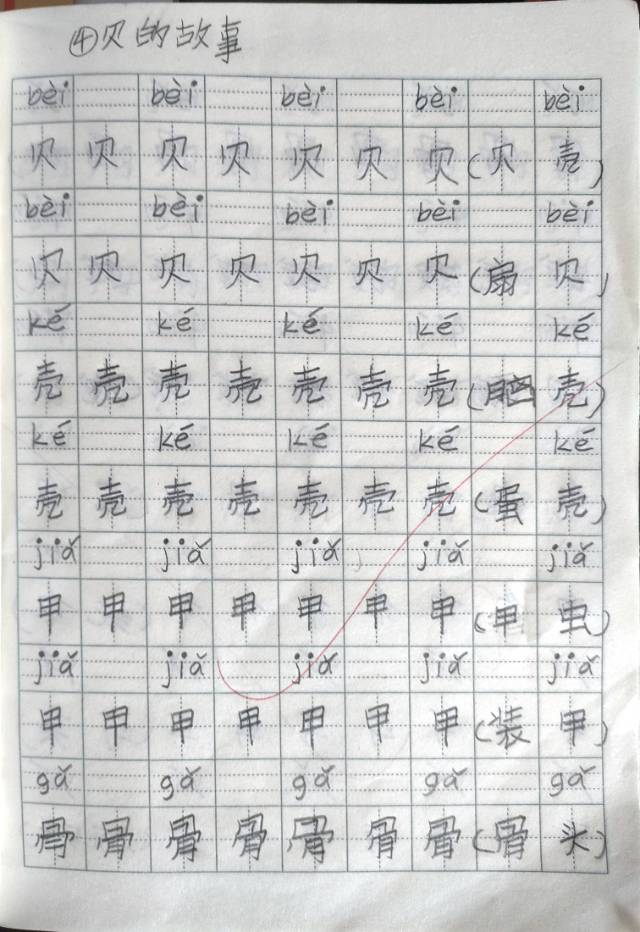 ④贝的故事
bèi bèi bèi bèi bèi
贝 贝 贝 贝 贝 贝 贝 (贝 壳)
bèi bèi bèi bèi bèi
贝 贝 贝 贝 贝 贝 贝 (扇 贝)
ké ké ké ké ké
壳 壳 壳 壳 壳 壳 壳 (脑 壳)
ké ké ké ké ké
壳 壳 壳 壳 壳 壳 壳 (蛋 壳)
jiǎ jiǎ jiǎ jiǎ jiǎ
甲 甲 甲 甲 甲 甲 甲 (甲 虫)
jiǎ jiǎ jiǎ jiǎ jiǎ
甲 甲 甲 甲 甲 甲 甲 (装 甲)
gǎ gǎ gǎ gǎ gǎ
骨 骨 骨 骨 骨 骨 骨 (骨 头)